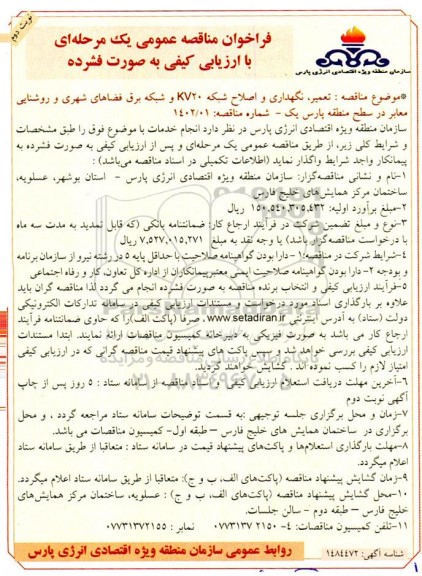 نوبت دوم
فراخوان مناقصه عمومی یک مرحله‌ای
با ارزیابی کیفی به صورت فشرده
سازمان منطقه ویژه اقتصادی انرژی پارس
*موضوع مناقصه : تعمیر، نگهداری و اصلاح شبکه KV۲۰ و شبکه برق فضاهای شهری و روشنایی
معابر در سطح منطقه پارس یک - شماره مناقصه: ۱۴۰۲/۰۱
سازمان منطقه ویژه اقتصادی انرژی پارس در نظر دارد انجام خدمات با موضوع فوق را طبق مشخصات
و شرایط کلی زیر، از طریق مناقصه عمومی یک مرحله‌ای و پس از ارزیابی کیفی به صورت فشرده به
پیمانکار واجد شرایط واگذار نماید (اطلاعات تکمیلی در اسناد مناقصه می‌باشد) :
۱-نام و نشانی مناقصه‌گزار: سازمان منطقه ویژه اقتصادی انرژی پارس - استان بوشهر، عسلویه،
ساختمان مرکز همایش‌های خلیج فارس
۲-مبلغ برآورد اولیه: ۱۵۰,۵۴۰,۳۰۵,۴۳۲ ریال
۳-نوع و مبلغ تضمین شرکت در فرآیند ارجاع کار: ضمانتنامه بانکی (که قابل تمدید به مدت سه ماه
با درخواست مناقصه‌گزار باشد) یا وجه نقد به مبلغ ۷,۵۲۷,۰۱۵,۲۷۱ ریال
۴-شرایط شرکت در مناقصه:۱ -دارا بودن گواهینامه صلاحیت با حداقل پایه ۵ در رشته نیرو از سازمان برنامه
و بودجه ۲- دارا بودن گواهینامه صلاحیت ایمنی معتبر پیمانکاران از اداره کل تعاون، کار و رفاه اجتماعی
۵-فرآیند ارزیابی کیفی و انتخاب برنده مناقصه به صورت فشرده انجام می گردد لذا مناقصه گران باید
علاوه بر بارگذاری اسناد مورد درخواست و مستندات ارزیابی کیفی در سامانه تدارکات الکترونیکی
دولت (ستاد) به آدرس اینترنتی www.setadiran.ir، صرفا (پاکت الف) را که حاوی ضمانتنامه فرآیند
ارجاع کار می باشد به صورت فیزیکی به دبیرخانه کمیسیون مناقصات ارائه نمایند. ابتدا مستندات
ارزیابی کیفی بررسی خواهد شد و سپس پاکت های پیشنهاد قیمت مناقصه گرانی که در ارزیابی کیفی
امتیاز لازم را کسب نموده اند ، گشایش خواهند گردید.
۶-آخرین مهلت دریافت استعلام ارزیابی کیفی و اسناد مناقصه از سامانه ستاد : ۵ روز پس از چاپ
آگهی نوبت دوم
۷-زمان و محل برگزاری جلسه توجیهی :به قسمت توضیحات سامانه ستاد مراجعه گردد ، و محل
برگزاری در ساختمان همایش های خلیج فارس – طبقه اول- کمیسیون مناقصات می باشد.
۸-مهلت بارگذاری استعلام‌ها و پاکت‌های پیشنهاد قیمت در سامانه ستاد : متعاقبا از طریق سامانه ستاد
اعلام میگردد.
۹-زمان گشایش پیشنهاد مناقصه (پاکت‌های الف، ب و ج): متعاقبا از طریق سامانه ستاد اعلام میگردد.
۱۰-محل گشایش پیشنهاد مناقصه (پاکت‌های الف، ب و ج) : عسلویه، ساختمان مرکز همایش‌های
خلیج فارس – طبقه دوم - سالن جلسات.
۱۱-تلفن کمیسیون مناقصات: ۴- ۰۷۷۳۱۳۷۲۱۵۰ نمابر : ۰۷۷۳۱۳۷۲۱۵۵
شناسه آگهی: ۱۴۸۴۴۷۲
روابط عمومی سازمان منطقه ویژه اقتصادی انرژی پارس